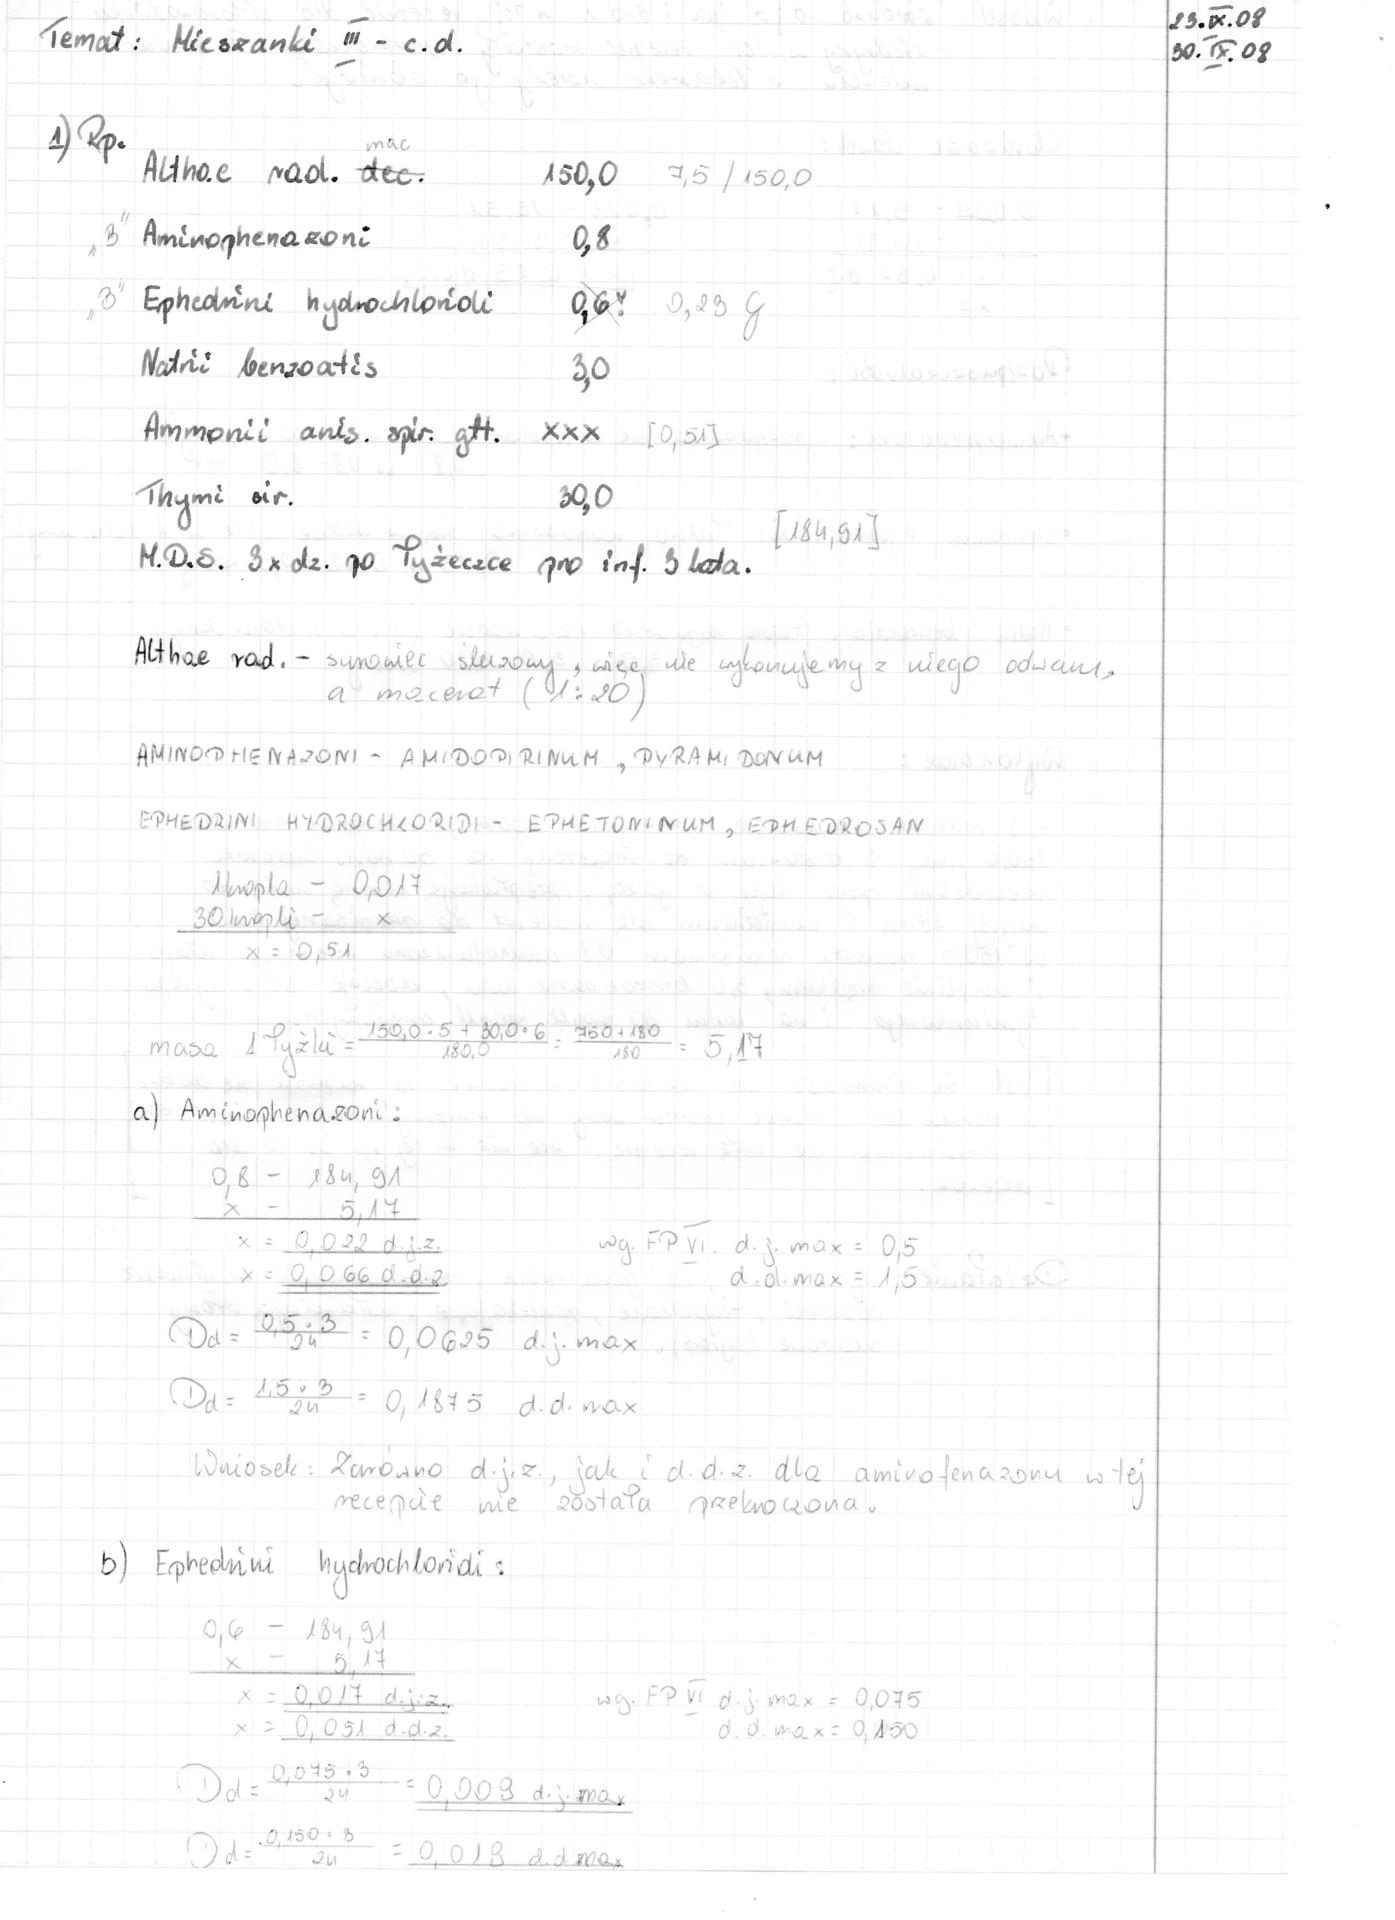 Temat: Mieszanki III - c.d.
23.IX.08
30.IX.08
1) Rp.
mac
Althae rad. dec. 150,0 7,5/150,0
"B" Aminophenazoni 0,8
"B" Ephedrini hydrochloridi 0,6! 0,23 g
Natrii benzoatis 3,0
Ammonii anis. spir. gtt. XXX [0,51]
Thymi sir. 30,0
[184,91]
M.D.S. 3x dz. po łyżeczce pro inf. 3 lata.
Althae rad. - surowiec śluzowy, więc nie wykonujemy z niego odwaru,
a macerat (1:20)
AMINOPHENAZONI - AMIDOPIRINUM, PYRAMIDONUM
EPHEDRINI HYDROCHLORIDI - EPHETONINUM, EPHEDROSAN
1 kropla - 0,017
30 kropli - x
x = 0,51
masa 1 łyżki = 150,0·5 + 30,0·6 / 180,0 = 750+180 / 180 = 5,17
a) Aminophenazoni:
0,8 - 184,91
x - 5,17
x = 0,022 d.j.z. wg. FP VI. d.j. max = 0,5
x = 0,066 d.d.z d.d. max = 1,5
Dd = 0,5·3 / 24 = 0,0625 d.j. max
Dd = 1,5·3 / 24 = 0,1875 d.d. max
Wniosek: Zarówno d.j.z., jak i d.d.z. dla aminofenazonu w tej
recepcie nie została przekroczona.
b) Ephedrini hydrochloridi:
0,6 - 184,91
x - 5,17
x = 0,017 d.j.z. wg. FP VI d.j. max = 0,075
x = 0,051 d.d.z. d.d. max = 0,150
Dd = 0,075·3 / 24 = 0,009 d.j. max
Dd = 0,150·3 / 24 = 0,019 d.d max